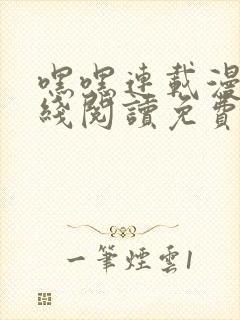 嘿嘿連載漫
綫閱讀免費
一筆煙雲1